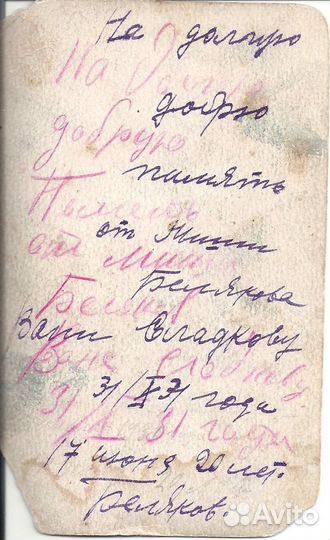 На долгую
На долгую
добрую
добрую
память
Память
от Миши
от Миши
Белякова
Беляк
Вани Сладкову
Ване Сладкову
31/X 31 года
31/X 31 года
17 июня 20 лет.
Беляков.
Avito